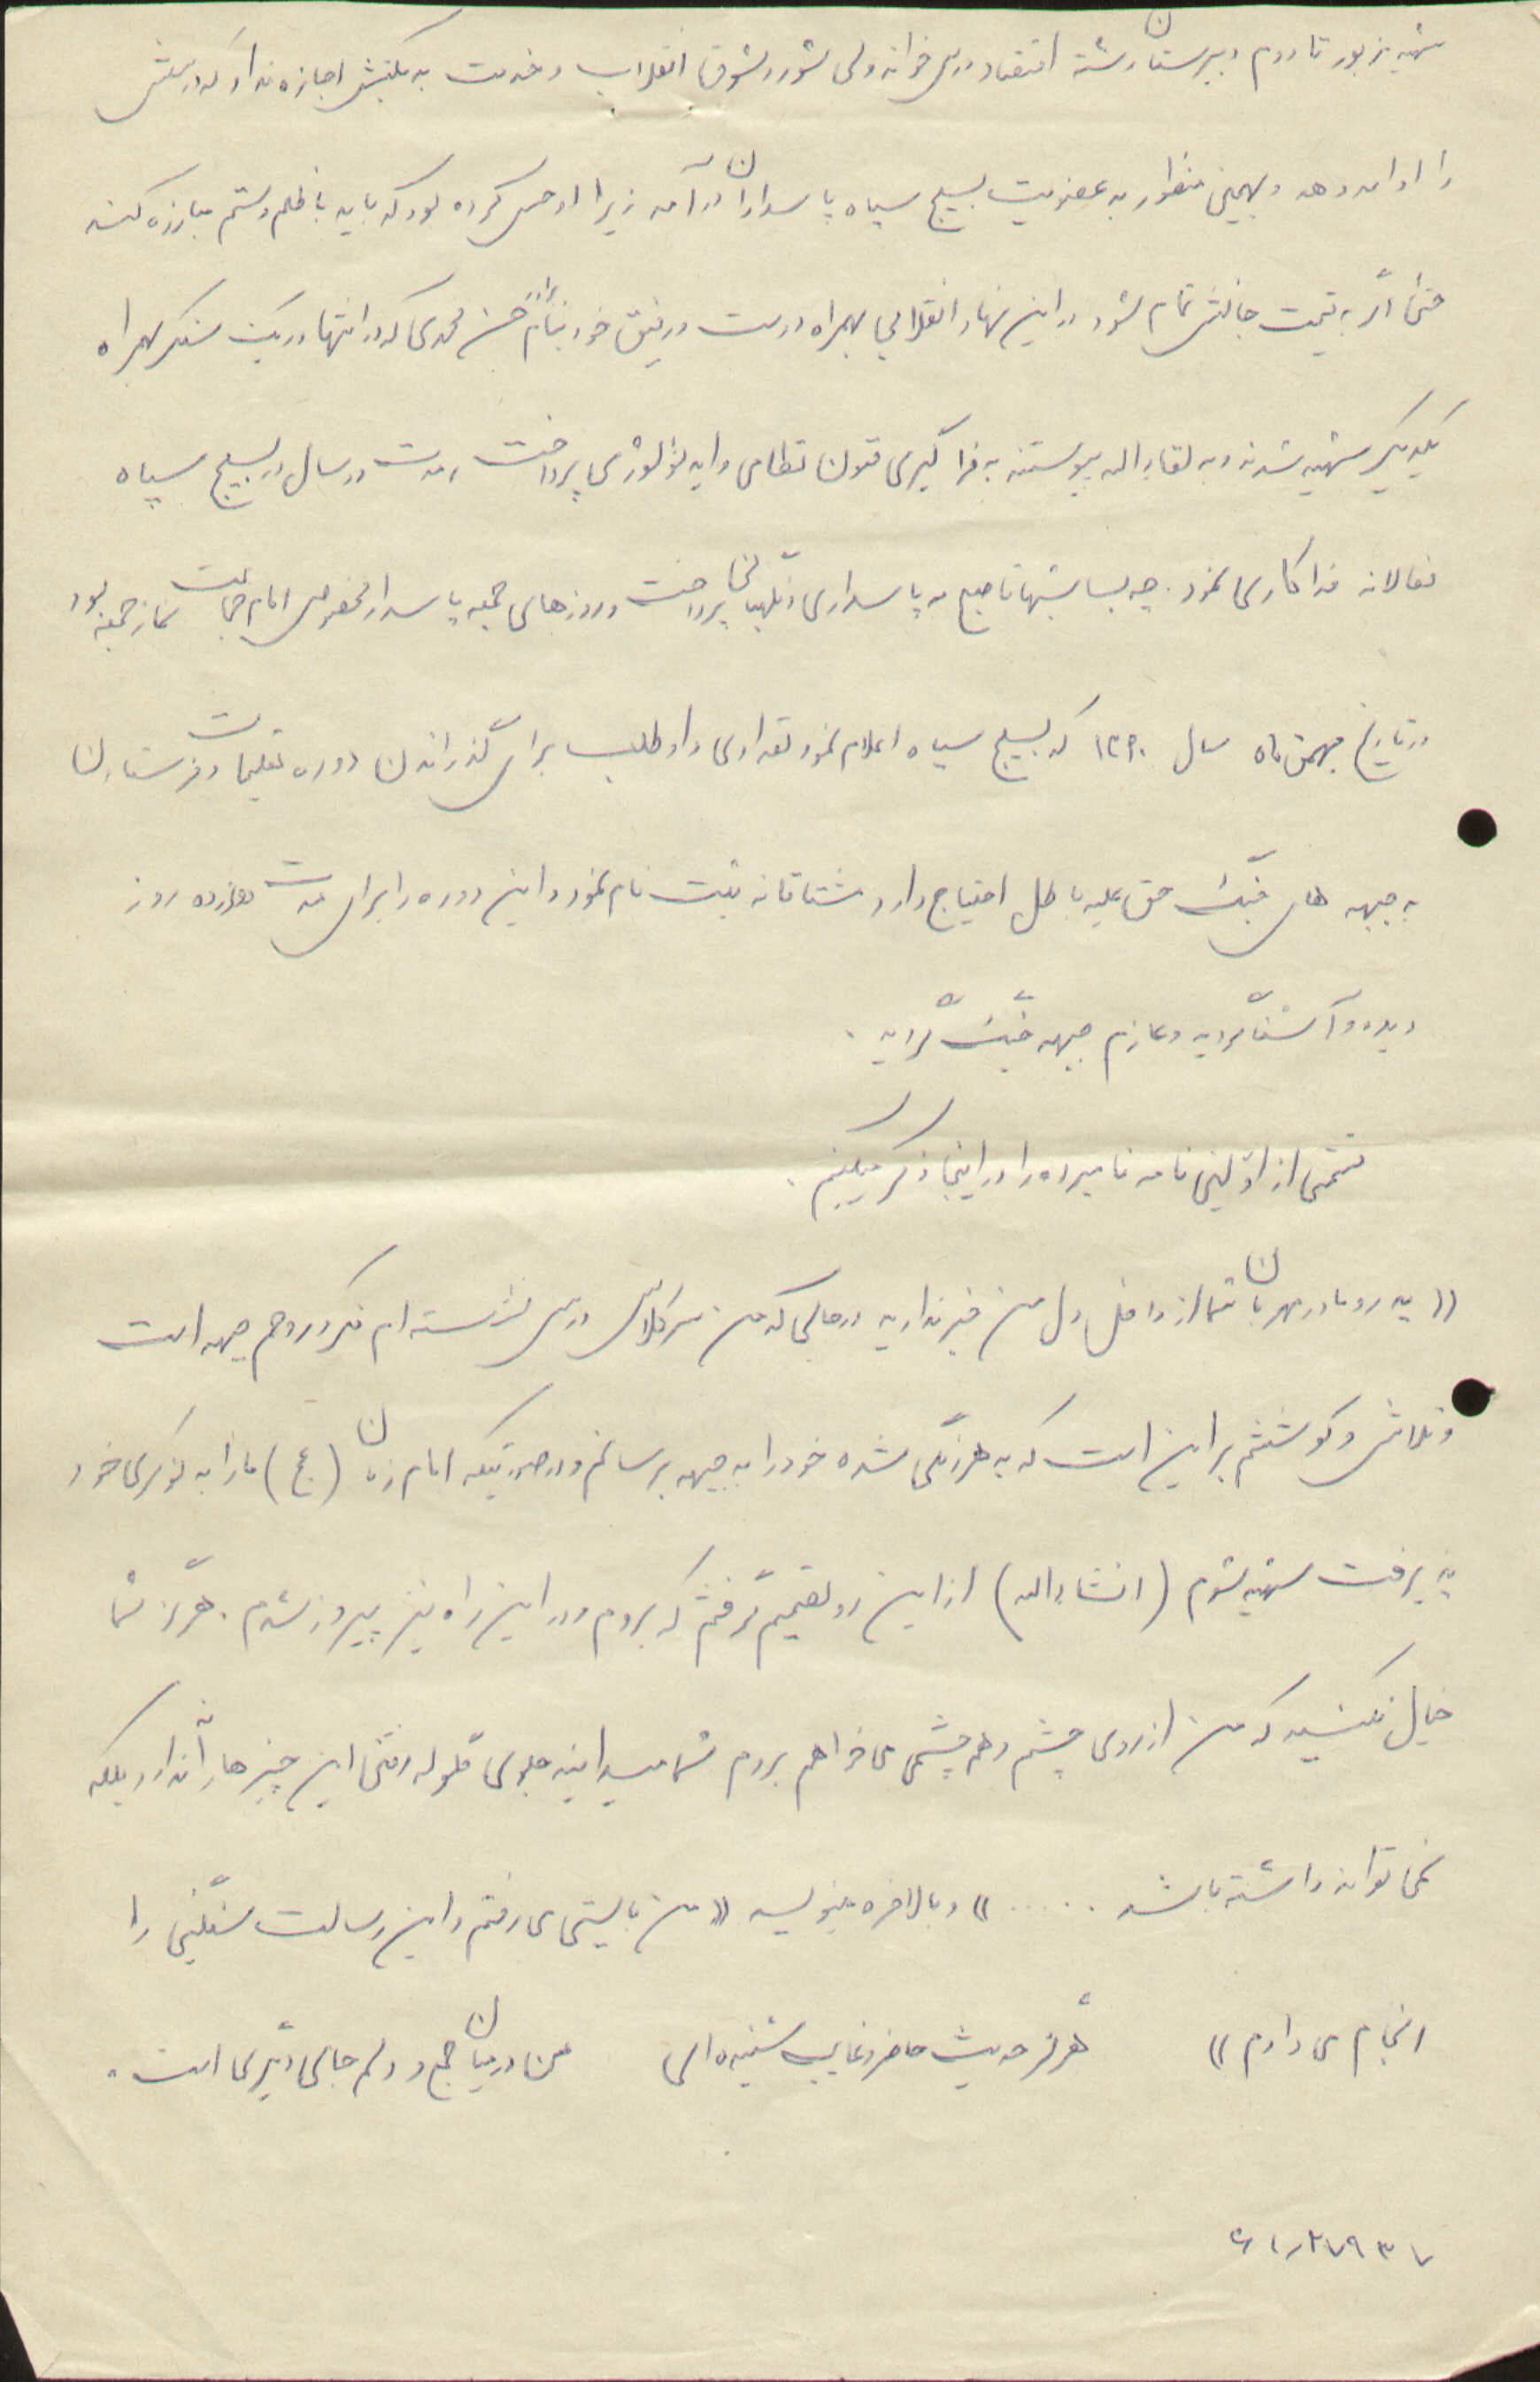 شهید مزبور تا دوم دبیرستان رشته اقتصاد درس خوانده ولی شور و شوق انقلاب و خدمت به مکتبش اجازه نداد که درسش
را ادامه دهد و بهمین منظور به عضویت بسیج سپاه پاسداران درآمد زیرا او حس کرده بود که باید با ظلم و ستم مبارزه کند
حتی اگر به قیمت جانش تمام شود در این نهاد انقلابی بهمراه دوست و رفیق خود بنام برادر حسن محمدی که در انتها در یک سنگر بهمراه
یکدیگر شهید شدند و به لقاءالله پیوستند به فراگیری فنون نظامی و ایدئولوژی پرداخت مدت دو سال در بسیج سپاه
فعالانه فداکاری نمود. چه بسا شبها تا صبح به پاسداری و نگهبانی پرداخت و روزهای جمعه پاسدار مخصوص امام جماعت نماز جمعه بود
در تاریخ بهمن ماه سال ۱۳۶۰ که بسیج سپاه اعلام نمود تعدادی داوطلب برای گذراندن دوره تعلیمات و فرستادن
به جبهه های جنگ حق علیه باطل احتیاج دارد مشتاقانه ثبت نام نمود و این دوره را برای مدت دوازده روز
دیده و آشنا گردید و عازم جبهه جنگ گردید.
قسمتی از اولین نامه نامبرده را در اینجا ذکر میکنیم.
(( پدر و مادر مهربان شما از داخل دل من خبر ندارید در حالی که من سر کلاس درس نشسته ام فکر و روحم جبهه است
و تلاش و کوششم بر این است که به هر زنگی شده خود را به جبهه برسانم و در صورتیکه امام زمان (عج) ما را به نوکری خود
پذیرفت شهید شوم (انشاءالله) از این رو تصمیم گرفتم که بروم و در این راه نیز پیروز شدم. هرگز شما
خیال نکنید که من از روی چشم و هم چشمی می خواهم بروم شما میدانید جلوی گلوله رفتن این چیزها را ندارد بلکه
نمی تواند داشته باشد ..... )) و بالاخره مینویسد (( من بایستی می رفتم و این رسالت سنگین را
انجام می دادم )) هرگز حدیث حاضر و غایب شنیده ای من در میان جمع و دلم جای دیگری است.